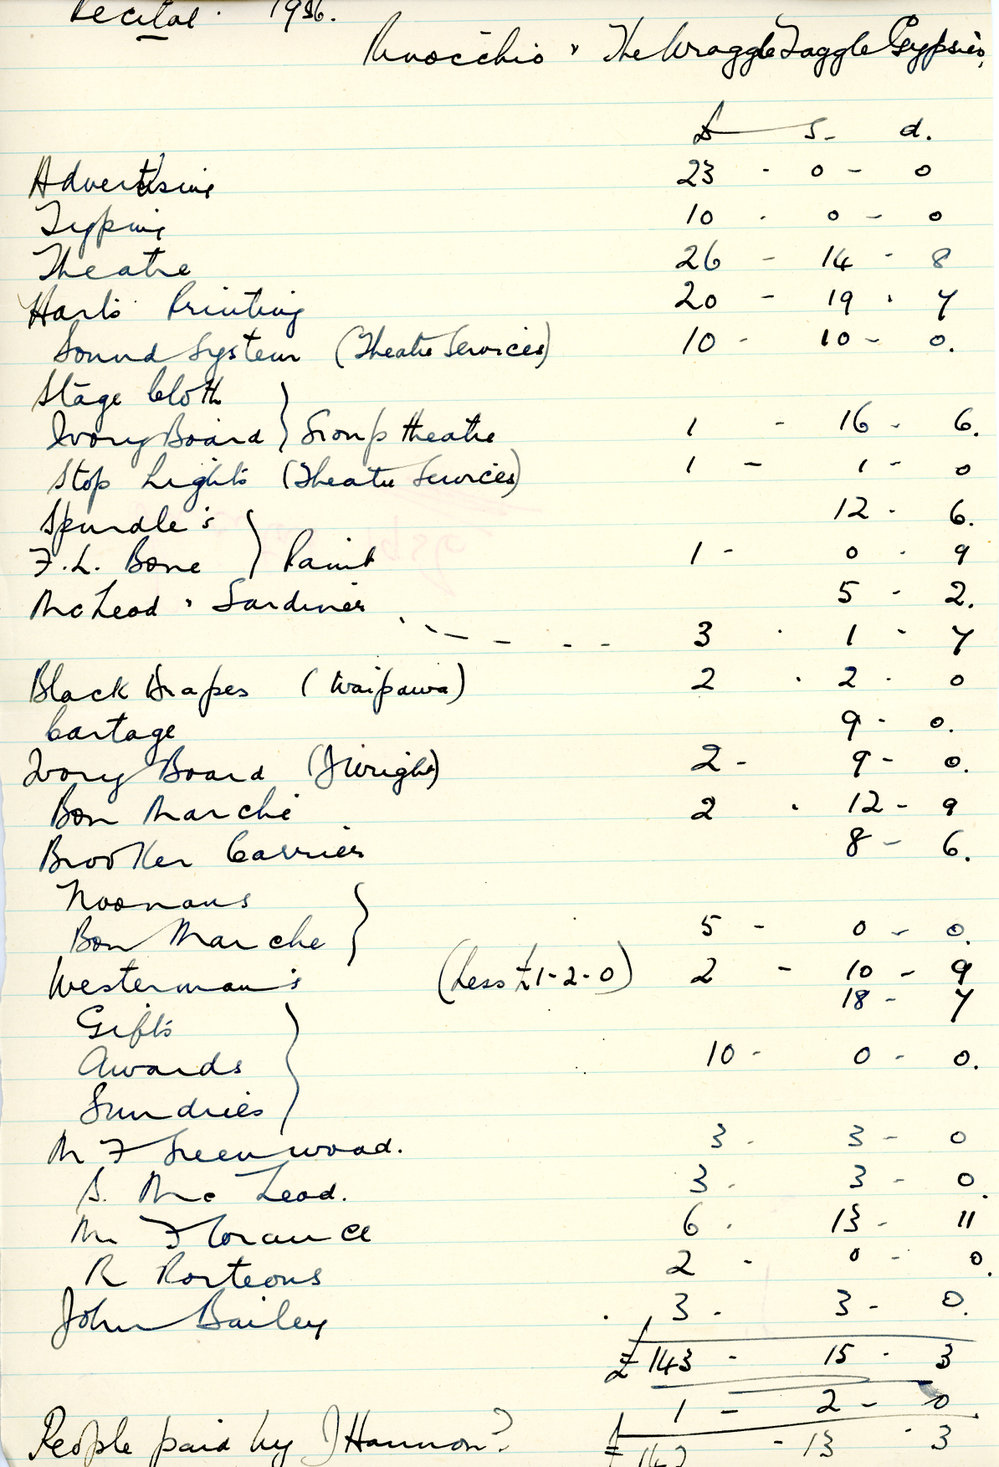 Recital. 1956.
Pinocchio & The Wraggle Taggle Gypsies.
£ s. d.
Advertising 23 - 0 - 0
Typing 10 - 0 - 0
Theatre 26 - 14 - 8
Hart's Printing 20 - 19 - 7
Sound System (Theatre Services) 10 - 10 - 0.
Stage Cloth
Ivory Board } Group Theatre 1 - 16 - 6.
Stop Lights (Theatre Services) 1 - 1 - 0
Spurdle's 12 - 6.
F.L. Bone } Paint 1 - 0 - 9
McLeod & Gardiner 5 - 2.
3 - 1 - 7
Black Drapes (Waipawa) 2 - 2 - 0
Cartage 9 - 0.
Ivory Board (J Wright) 2 - 9 - 0.
Bon Marché 2 - 12 - 9
Brooker Carrier 8 - 6.
Noonans
Bon Marche } 5 - 0 - 0.
Westerman's (Less £1-2-0) 2 - 10 - 9
18 - 7
Gifts
Awards } 10 - 0 - 0.
Sundries
M F Greenwood. 3 - 3 - 0
S. McLeod. 3 - 3 - 0.
M. Florance 6 - 13 - 11
R Porteous 2 - 0 - 0.
John Bailey 3 - 3 - 0.
£143 - 15 - 3
1 - 2 - 0.
People paid by J Hannon? £142 - 13 - 3